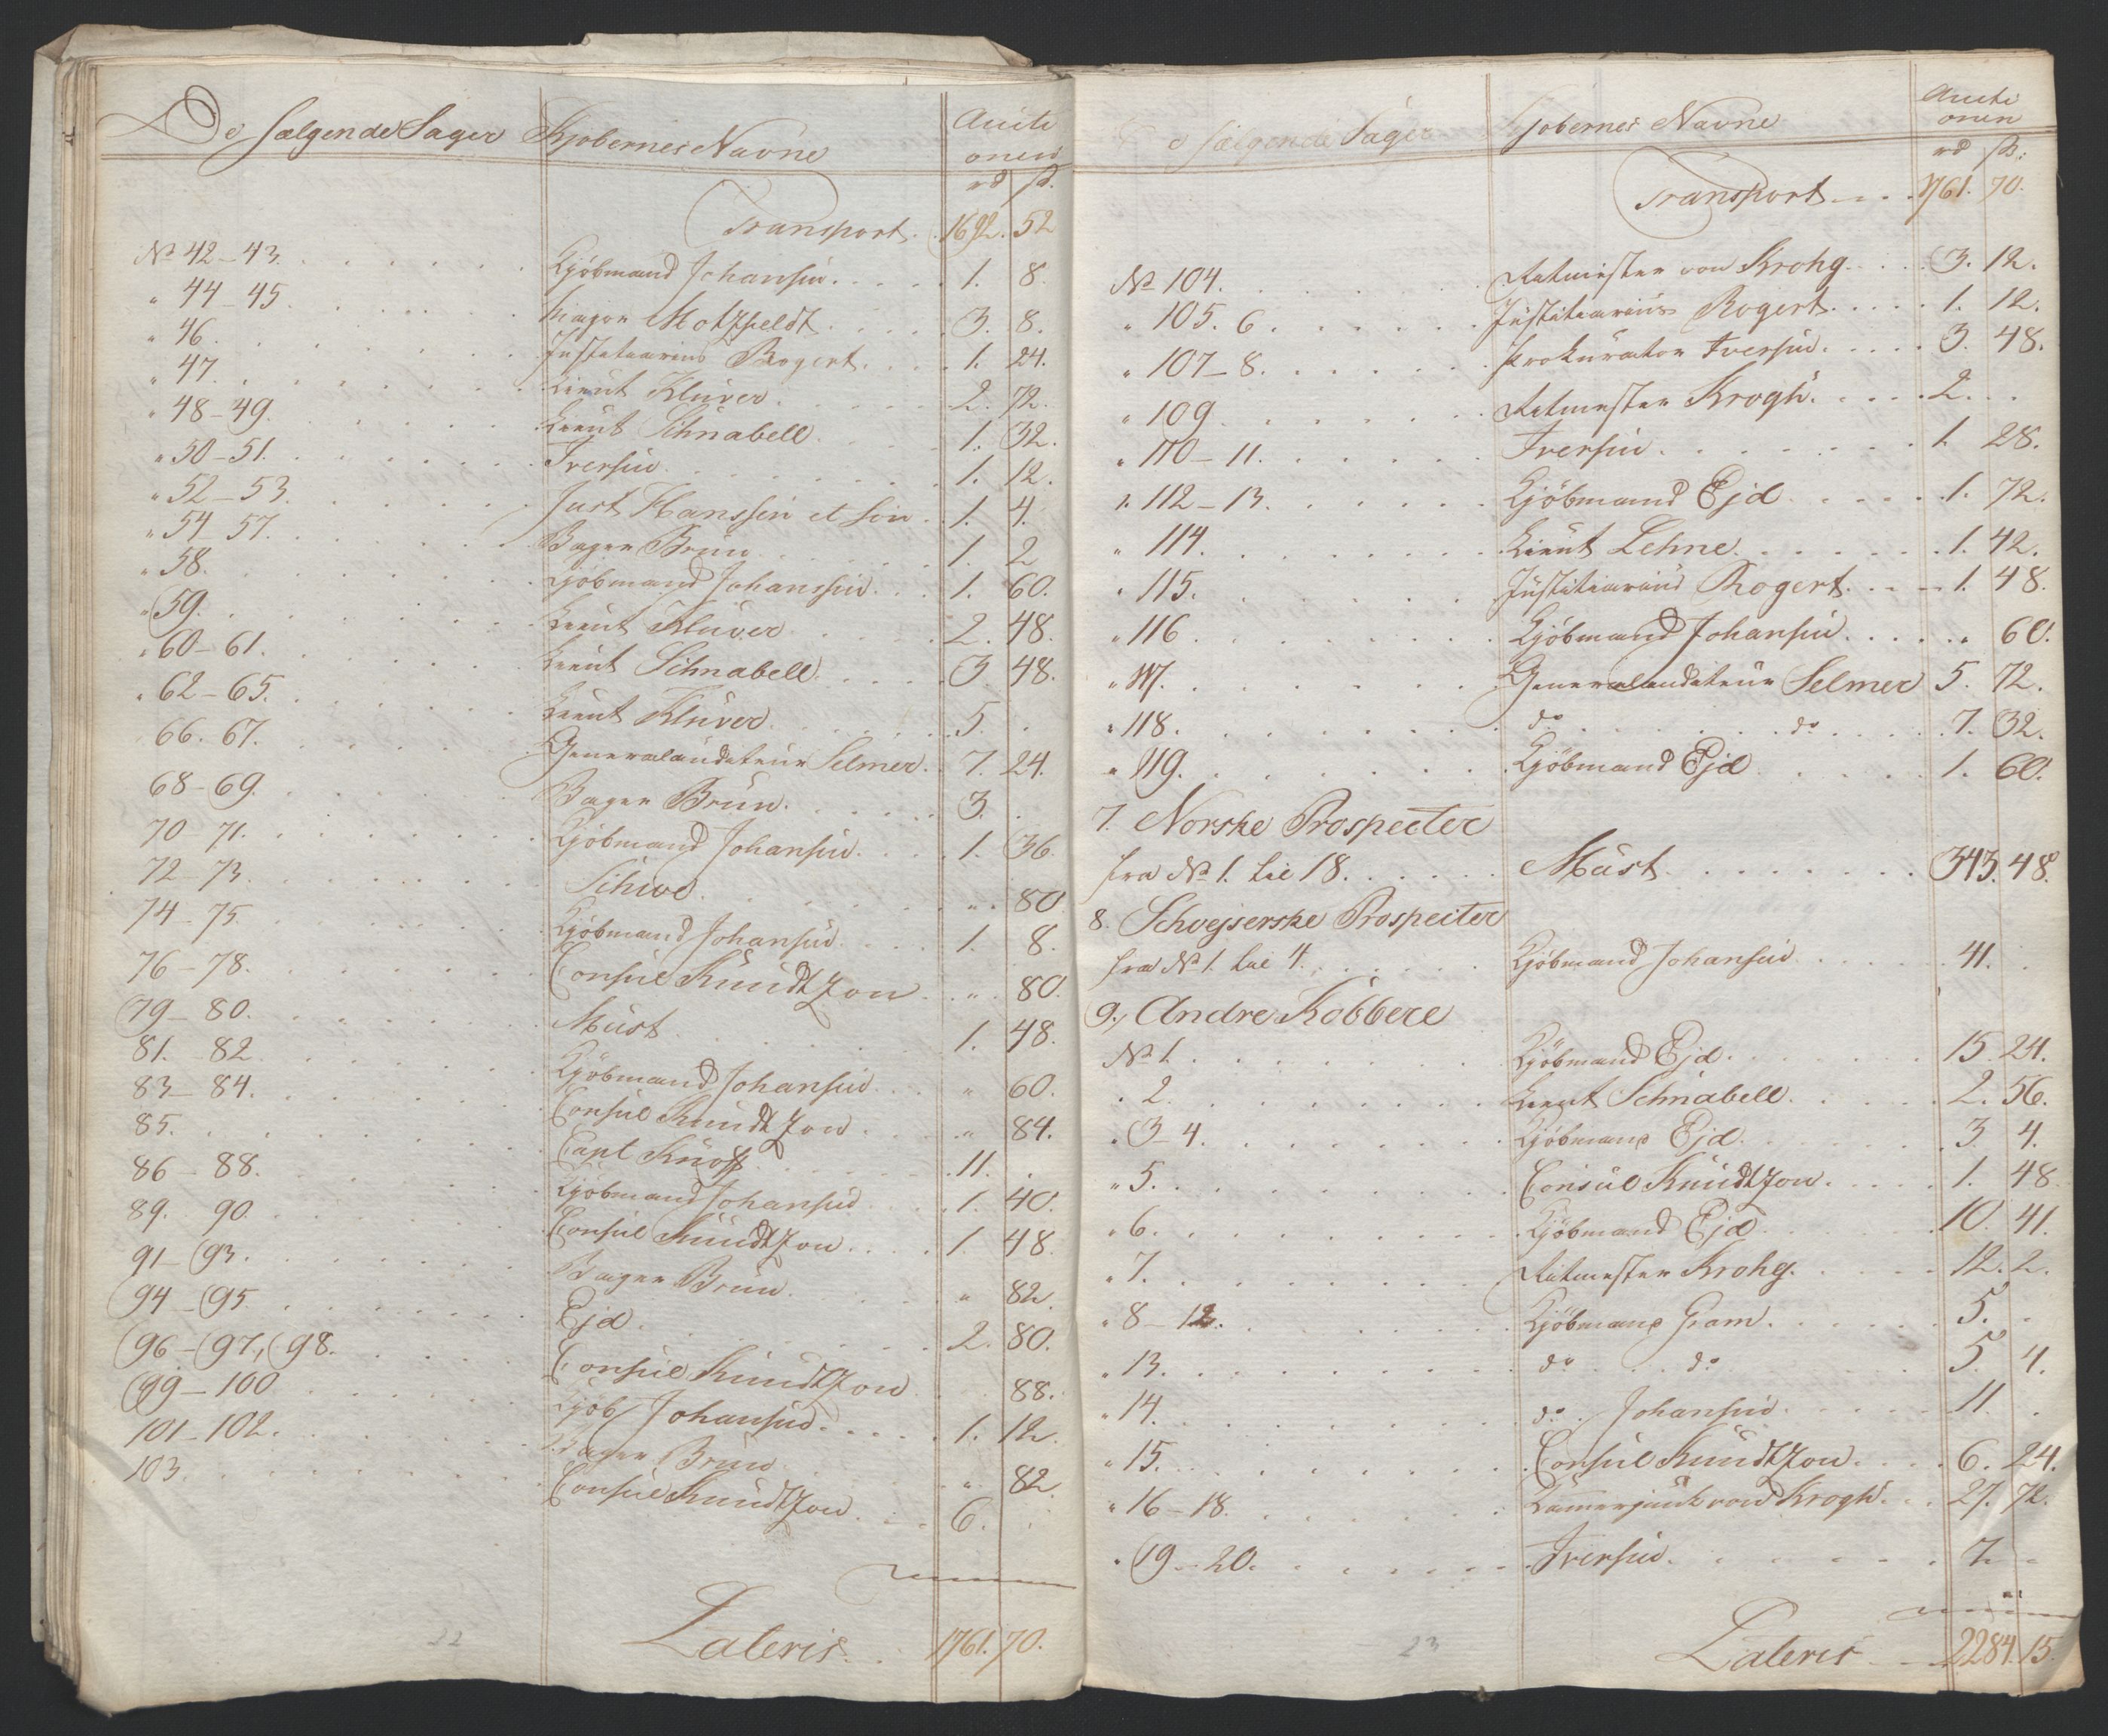 De Sælgende Sager Kjobernes Navne Aucti
onen
rd ß.
Transport. 1692. 52
No 42-43. Kjöbmand Johansen. 1. 8.
" 44-45. Major Motzfeldt. 3. 8.
" 46. Justitiarius Rogert. 1. 24.
" 47. Lieut Klüver. 2. 72.
" 48-49. Lieut Schnabell. 1. 32.
" 50-51. Iversen. 1. 12.
" 52-53. Just Hanssen et Sön. 1. 4.
" 54-57. Bager Brün. 1. 2
" 58. Kjöbmand Johanssen. 1. 60.
" 59. Lieut Klüver. 2. 48.
" 60-61. Lieut Schnabell. 3. 48.
" 62-65. Lieut Klüver. 5. .
66. 67. Generalauditeur Selmer. 7. 24.
68-69. Bager Brün. 3. .
70-71. Kjöbmand Johansen. 1. 36.
72-73. Schive. " 80
74-75. Kjöbmand Johansen. 1. 8.
76-78. Consul Knudtzon. " 80.
79-80. Müst 1. 48.
81.-82. Kjöbmand Johansen. " 60.
83-84. Consul Knudtzon. " 84.
85. Capt Knoff. 11. .
86-88. Kjöbmand Johansen. 1. 40.
89. 90. Consul Knudtzon. 1. 48.
91-93. Bager Brün. " 82.
94-95 Ejd. 2. 80.
96-97, 98. Consul Knudtzon. 88.
99-100 Kjöb Johansen. 1. 12.
101-102. Bager Brün. " 82.
103. Consul Knudtzon. 6. .
Lateris. 1761. 70.
22
De Sælgende Sager Kjobernes Navne Aucti
onen
rd ß.
Transport 1761. 70.
No 104. Ritmester von Krohg. 3. 12.
" 105. 6. Justitiarius Rogert. 1. 12.
" 107-8. Prokurator Iversen. 3. 48.
" 109. Ritmester Krogh. 2. .
" 110-11. Iversen. 1. 28.
" 112-13. Kjöbmand Ejd. 1. 72.
" 114. Lieut Lehne. 1. 42.
" 115. Justitiarius Rogert. 1. 48.
" 116. Kjöbmand Johansen. " 60.
" 117. Generalauditeur Selmer 5. 72.
" 118. do do. 7. 32.
" 119. Kjöbmand Ejd 1. 60.
7. Norske Prospecter
fra No 1. til 18. Müst. 343. 48.
8. Schvejserske Prospecter
fra No 1. til 4. Kjöbmand Johansen. 41. .
9. Andre Kobbere
No 1. Kjöbmand Ejd. 15. 24.
" 2. Lieut Schnabell. 2. 56.
" 3-4. Kjöbmand Ejd. 3 4.
" 5. Consul Knudtzon. 1. 48
" 6. Kjöbmand Ejd. 10. 41.
" 7. Ritmester Krohg. 12. 2.
" 8-12. Kjöbmand Gram. 5. .
" 13. do do 5. 4.
" 14. do. Johansen. 11. .
" 15. Consul Knudtzon. 6. 24.
" 16-18. Kammerjunk von Krogh. 27. 72.
" 19-20. Iversen. 7. -
Lateris 2284. 15.
23